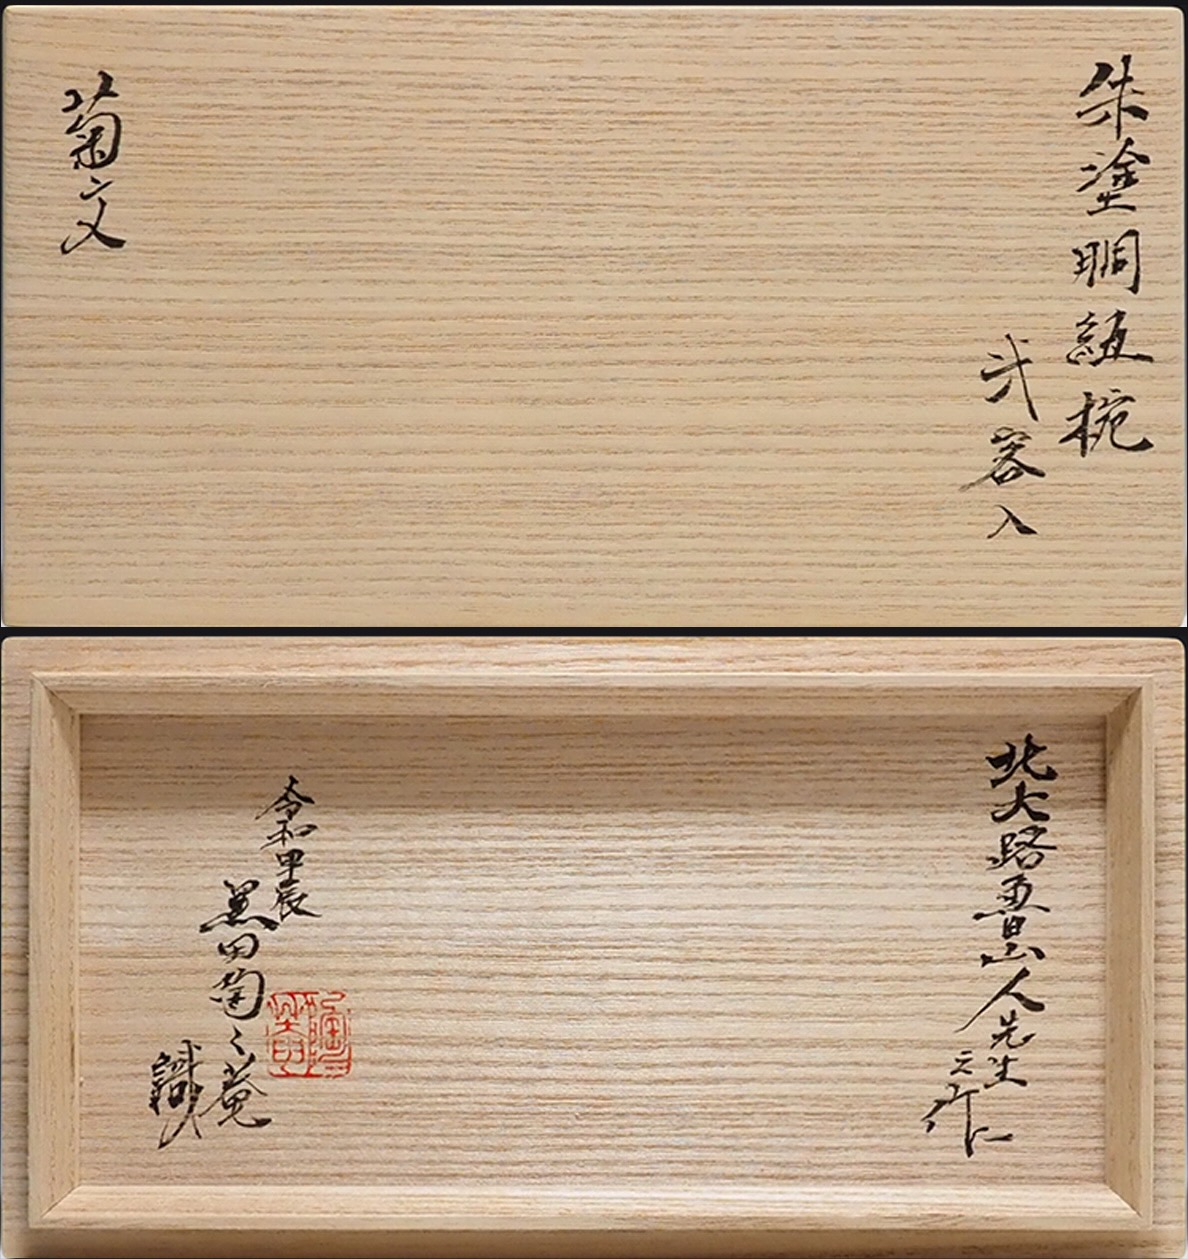 朱塗胴紐椀
弐客入
菊文
北大路魯山人先生
之作
令和甲辰
黒田陶々菴
識